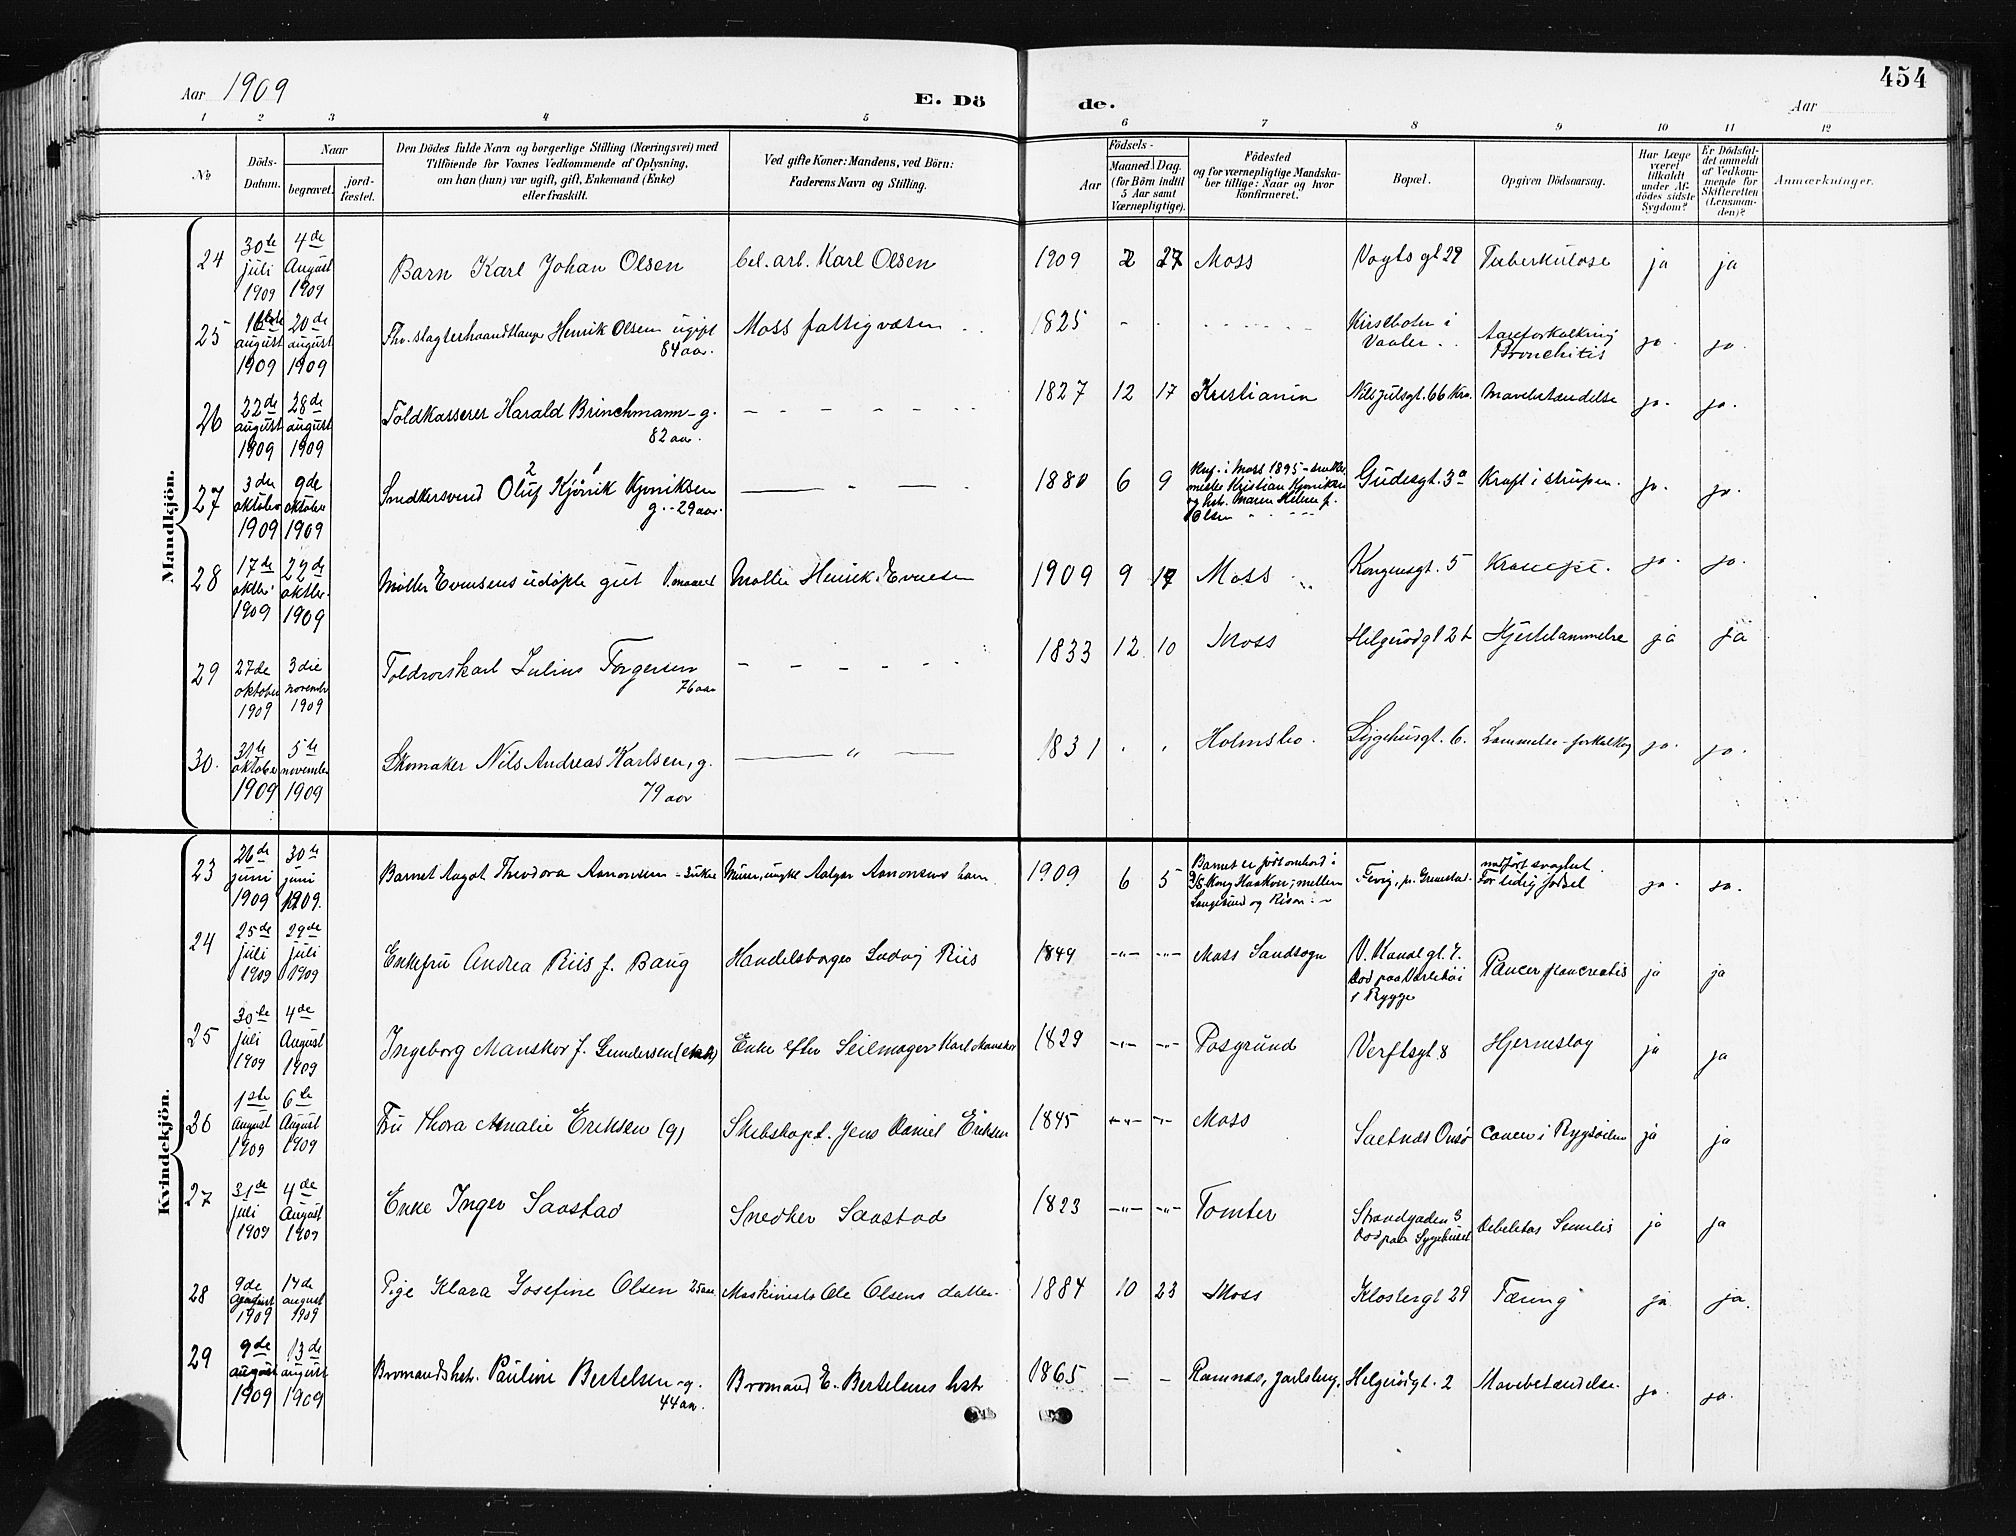 454
Aar 1909
E. Dö
de.
Aar
1 2 3 4 5 6 7 8 9 10 11 12
No
Döds-Datum.
Naar
begravet.
jord-fæstet.
Den Dödes fulde Navn og borgerlige Stilling (Næringsvei) med
Tilföiende for Voxnes Vedkommende af Oplysning,
om han (hun) var ugift, gift, Enkemand (Enke)
eller fraskilt.
Ved gifte Koner: Mandens, ved Börn:
Faderens Navn og Stilling.
Födsels-
Aar
Maaned. Dag.
(for Börn indtil
5 Aar samt
Værnepligtige).
Födested
og for værnepligtige Mandska-
ber tillige: Naar og hvor
konfirmeret.
Bopæl.
Opgiven Dödsaarsag.
Har Læge
været
tilkaldt
under Af-
dödes sidste
Sygdom?
Er Dödsfal-
det anmeldt
af Vedkom-
mende for
Skifteretten
(Lensman-
den)?
Anmærkninger.
Mandkjön.
24 30te juli 1909 4de August 1909 Barn Karl Johan Olsen bel. arb. Karl Olsen 1909 2 27 Moss Vogtsgt 29 Tuberkulose ja ja
25 16de august 1909 20de august 1909 Fhv. slagterhaandtlanger Henrik Olsen ugift 84 aar. Moss fattigvæsen 1825 Kirseboten i Vaaler Aareforkalkning Bronchitis ja. ja.
26 22de august 1909 28de august 1909 Toldkasserer Harald Brinchmann - g. 82 aar. 1827 12 17 Kristiania Nils Julsgt. 66 Kra. Mavebetændelse ja. ja.
27 3die oktober 1909 9de oktober 1909 Snedkersvend Oluf Kjönik Kjøniksen g. - 29 aar. 1880 6 9 Knf. i Moss 1895 - snekker mester Kristian Kjøniksen og hst. Maren Helene f. Olsen Gudesgt. 3a Kræft i strupen. ja. ja.
28 17de oktbr. 1909 22de oktbr. 1909 Møller Evensens udøpte gut 1 maaned Møller Henrik Evensen 1909 9 17 Moss Kongensgt. 5 ja. ja.
29 27de oktober 1909 3die november 1909 Toldrorskarl Julius Torgersen 76 aar 1833 12 10 Moss Helgerødgt 2 b Hjertelammelse ja ja
30. 31te oktober 1909 5te november 1909 Skomaker Nils Andreas Karlsen, g. 79 aar 1831 Holmsbo. Sygehusgt. 6. Lammelse - forkalkng ja. ja.
Kvindekjön.
23 26de juni 1909 30te juni 1909. Barnet Aagot Theodora Aanonsen - 3 uker Murer, ungkl Aslger Aanonsens barn 1909 6 5 Barnet er født ombord i D/S Kong Haakon; mellem Langesund og Risør. Fevig, pr. Grimstad. medført svaghet. For tidlig fødsel ja. ja.
24 25de juli 1909 29de juli 1909 Enkefru Andrea Riis f. Baug Handelsborger Ludvig Riis 1849 Moss Landsogn V. Kanalgt. 7. Død paa Værlehøi i Rygge Cancer pancreatis ja ja
25 30te juli 1909 4de August 1909 Ingeborg Manskor f. Gundersen (enke) Enke efter Seilmager Karl Manskor 1829 Porsgrund Verftsgt 8 Hjerneslag ja ja
26 1ste August 1909 6te August 1909 Fru Thora Amalie Eriksen (g) Skibskapt. Jens Daniel Eriksen 1845 Moss Saltnæs Onsø Cancer i Rygsøilen ja ja
27 31de juli 1909 4de August 1909 Enke Inger Saastad Snedker Saastad 1823 Tomter Strandgaden 3 Død paa Sygehuset Debilitas Senilis ja ja
28 9de august 1909 14de august 1909 Pige Klara Josefine Olsen 25 aar Maskinist Ole Olsens datter. 1884 10 23 Moss Klostergt 29 Tæring ja ja.
29 9de august 1909 13de august 1909 Bromandshst. Pauline Bertelsen - g. 44 aar. Bromand E. Bertelsens hstr 1865 Ramnæs, Jarlsberg, Helgerødgt. 2 Mavebetændelse. ja. ja.